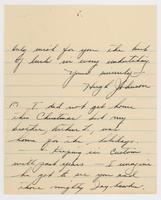 only wish for you the best
of luck in every undertaking.
Yours sincerely—
Hugh Johnson
I did not get home
this Christmas but my
brother Herbert, was
home for the holidays.
— Keeping in Custom
with past years. I imagine
he got to see you and
those mighty Jay-hawks.